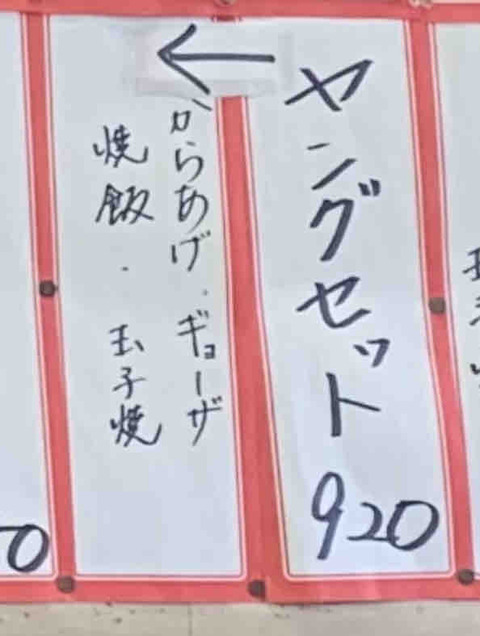 ヤングセット
920
←
からあげ.ギョーザ
焼飯.玉子焼
0